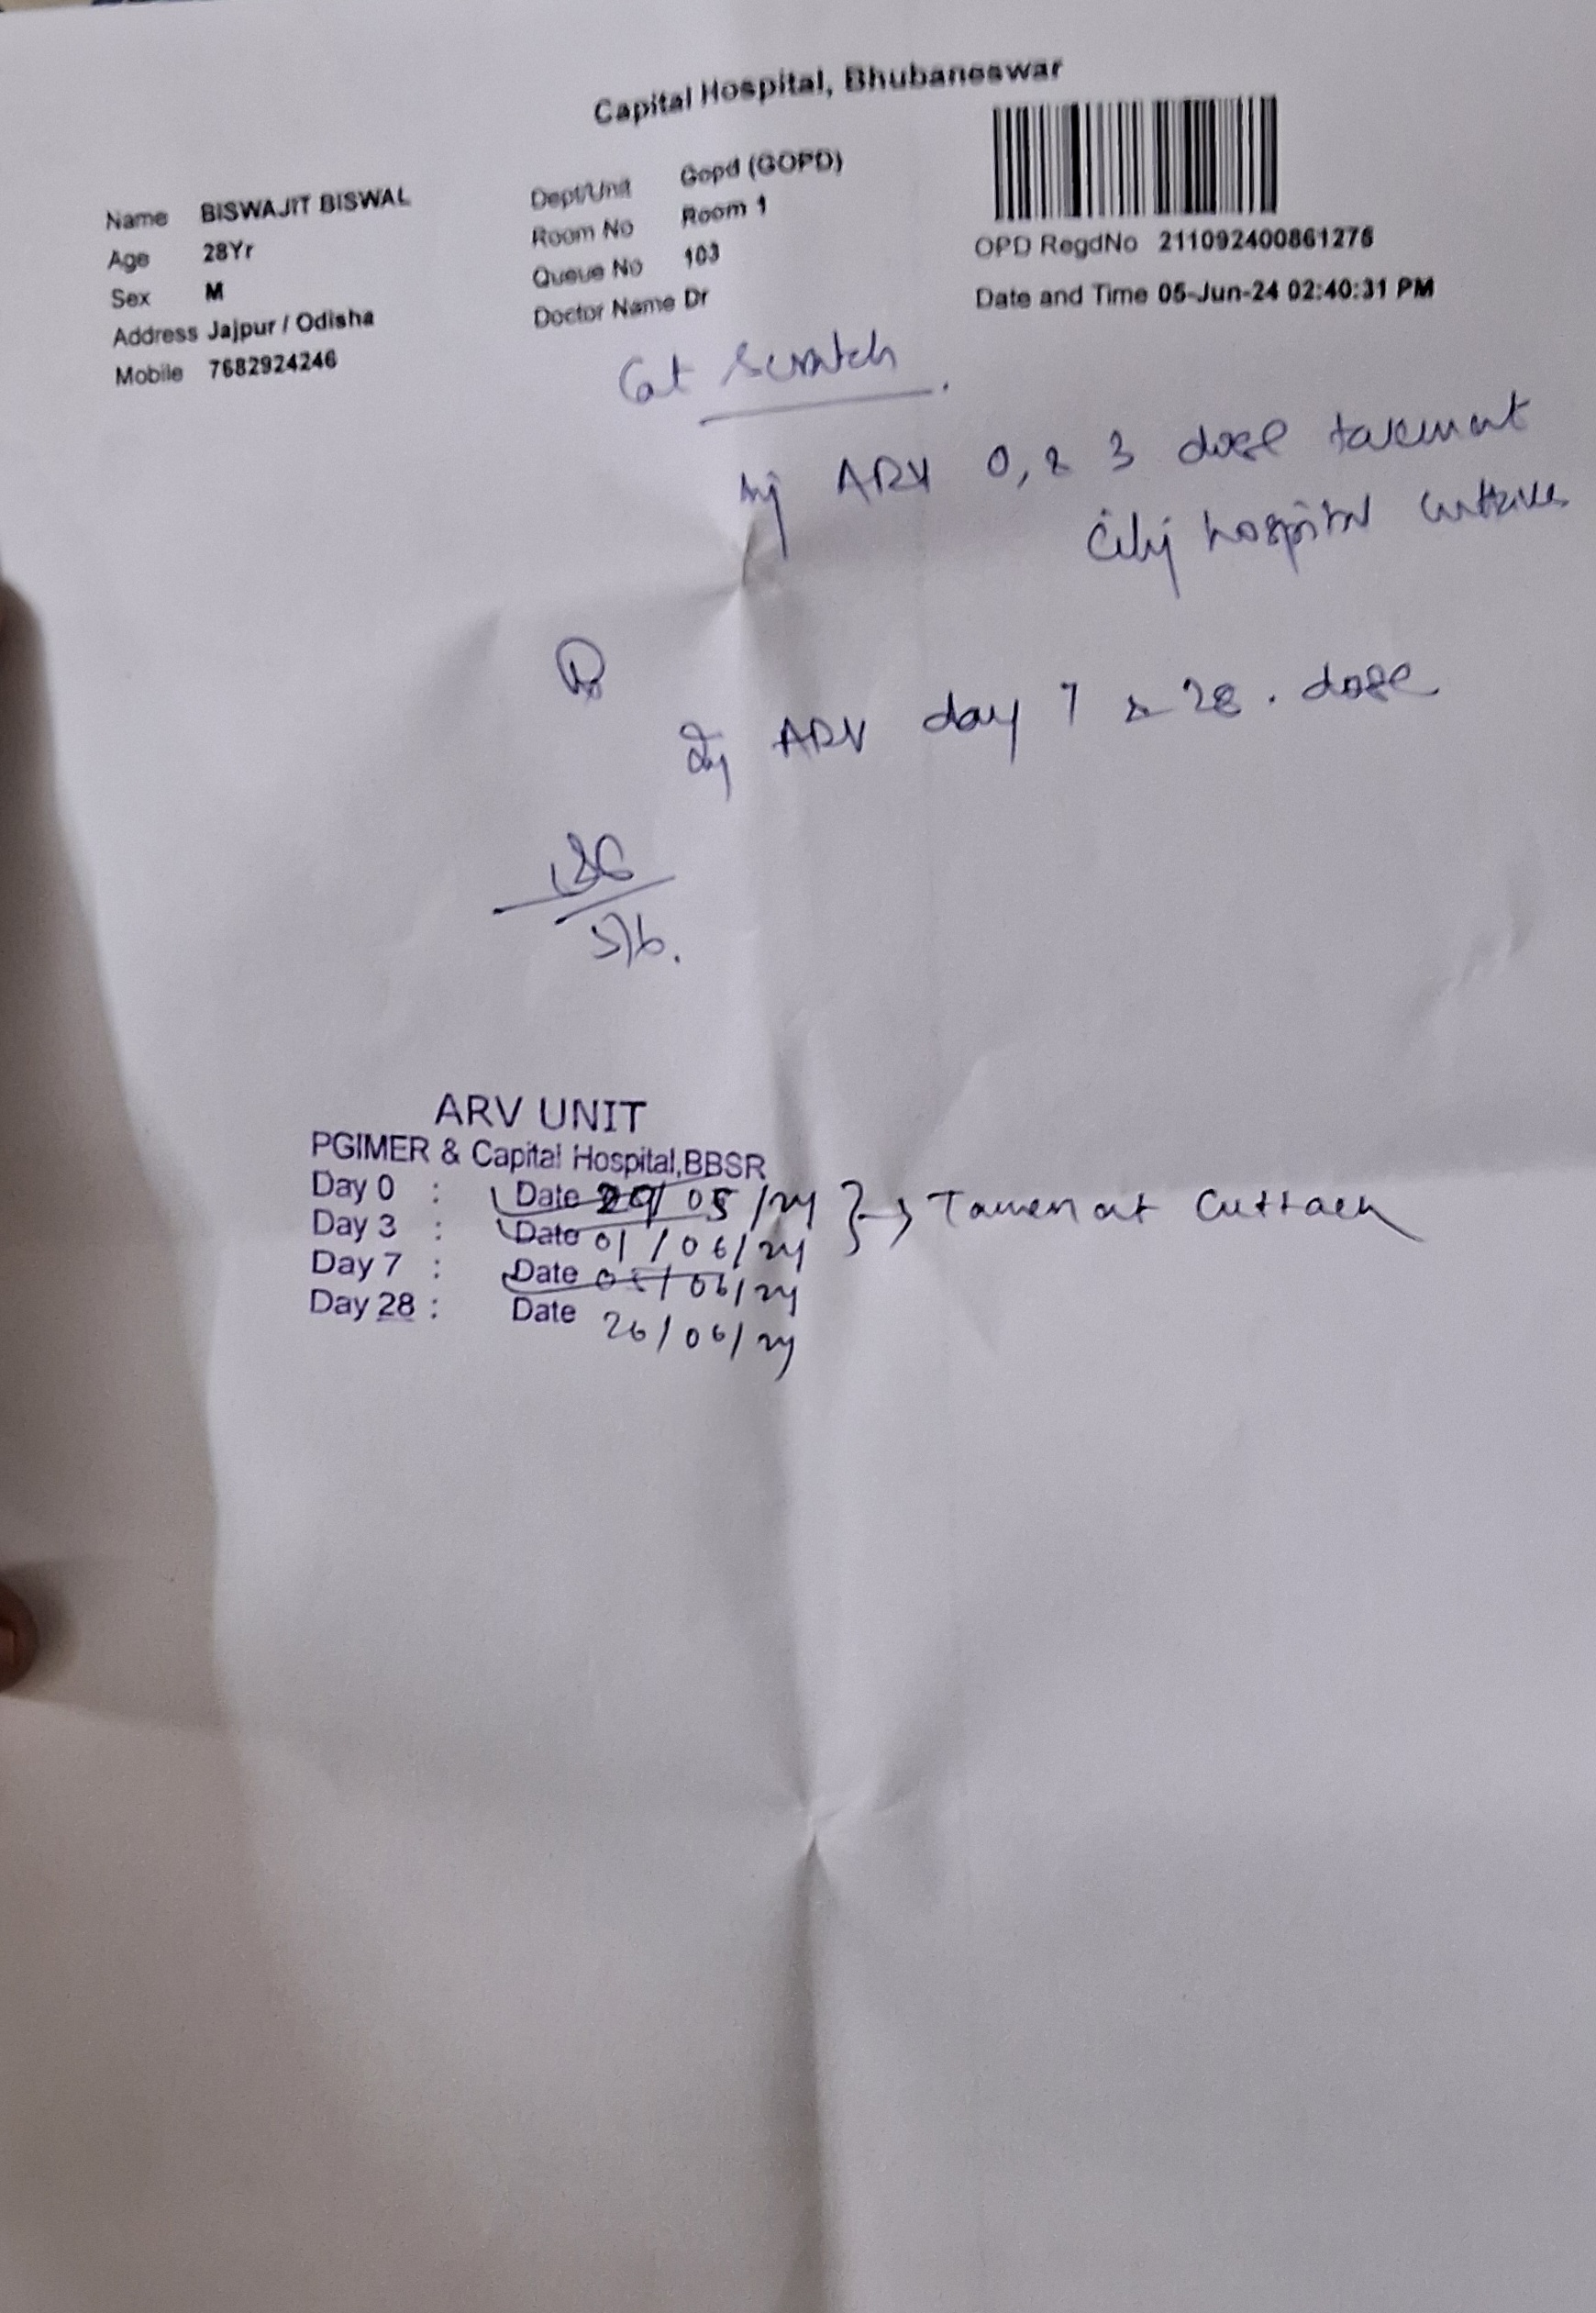 Capital Hospital, Bhubaneswar
Name BISWAJIT BISWAL
Age 28Yr
Sex M
Address Jajpur / Odisha
Mobile 7682924246
Dept/Unit Gopd (GOPD)
Room No Room 1
Queue No 103
Doctor Name Dr
OPD RegdNo 211092400861276
Date and Time 05-Jun-24 02:40:31 PM
Cat Scratch
Inj ARV 0, & 3 dose taken at
City hospital
Inj ARV day 7 & 28 . dose
5/6.
ARV UNIT
PGIMER & Capital Hospital,BBSR
Day 0 : Date 29/05/24
Day 3 : Date 01/06/24 } → Taken at Cuttack
Day 7 : Date 05/06/24
Day 28 : Date 26/06/24